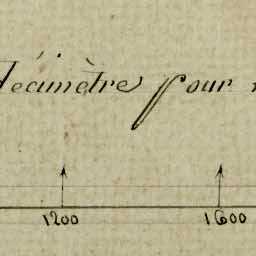 décimètre pour
1200 1600